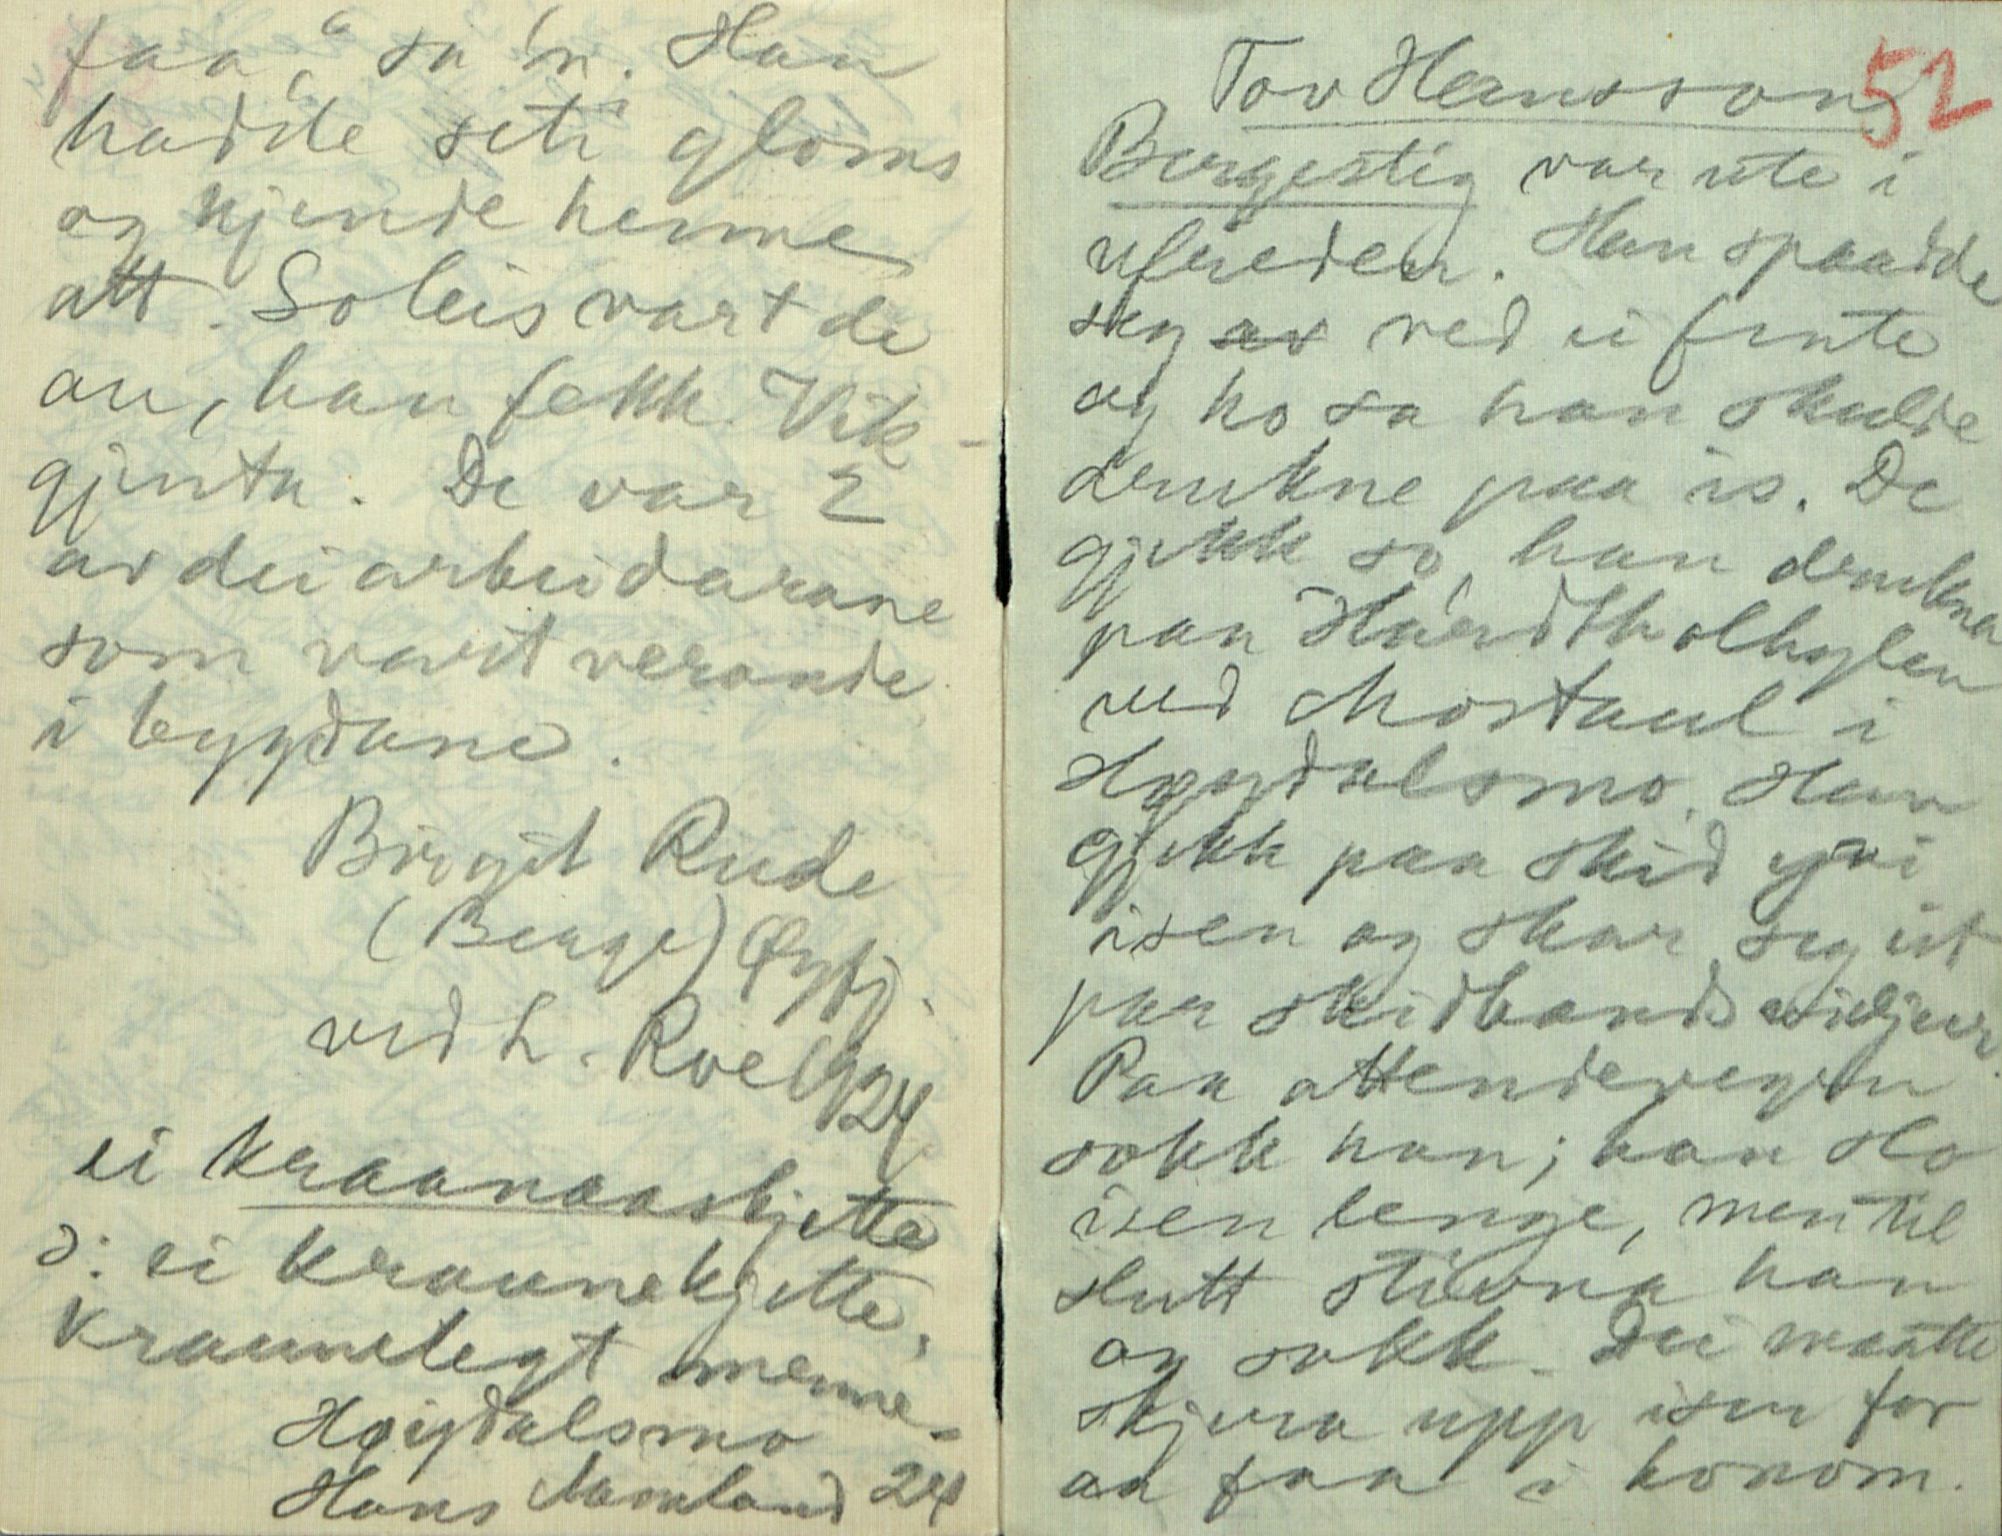 faa," sa 'n. Han
hadde seti gloms
og kjende henne
att. Soleis vart de
au, han fekk Vik-
gjenta. De var 2
av dei arbeidarane
som vart verande
i bygdane.
Birgit Rude
(Berge) Øyfj.
ved L. Roe 1924
ei kraanaaskjette
ɔ: ei kraunekjette,
kraunelegt menne-
Høydalsmo
Hans 24
52
Tov Hansson
Bergestig var ute i
ufreden. Han spaadde
seg av ved ei fente
og ho sa han skulde
drukne paa is. De
gjekk so, han drukna
paa
ved Mostaul i
Høydalsmo. Han
gjekk paa skid yvi
isen og skar seg ut
paa skidbands vidjeur.
Paa attendevegen
sokk han; han slo
isen lenge, men til
slutt stivna han
og sokk. Dei maatte
skjera upp isen for
aa faa i honom.